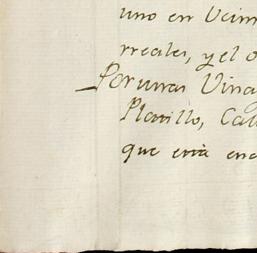 uno en Veim
rreales, y el o
Por unas Vina
Platillo, Cal
que está enc